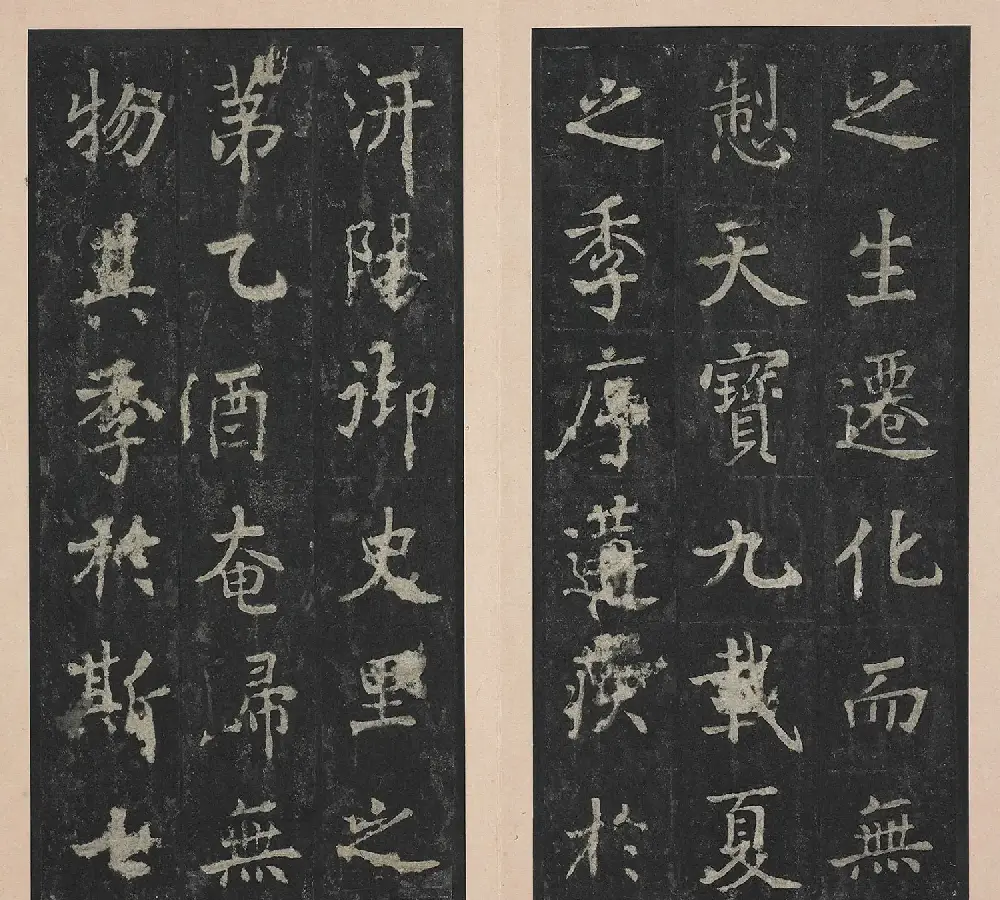 之生遷化而無
製天寶九載夏
之季序遘疾於
汧陽御史里之
苐乙酉奄歸無
物其季於斯七